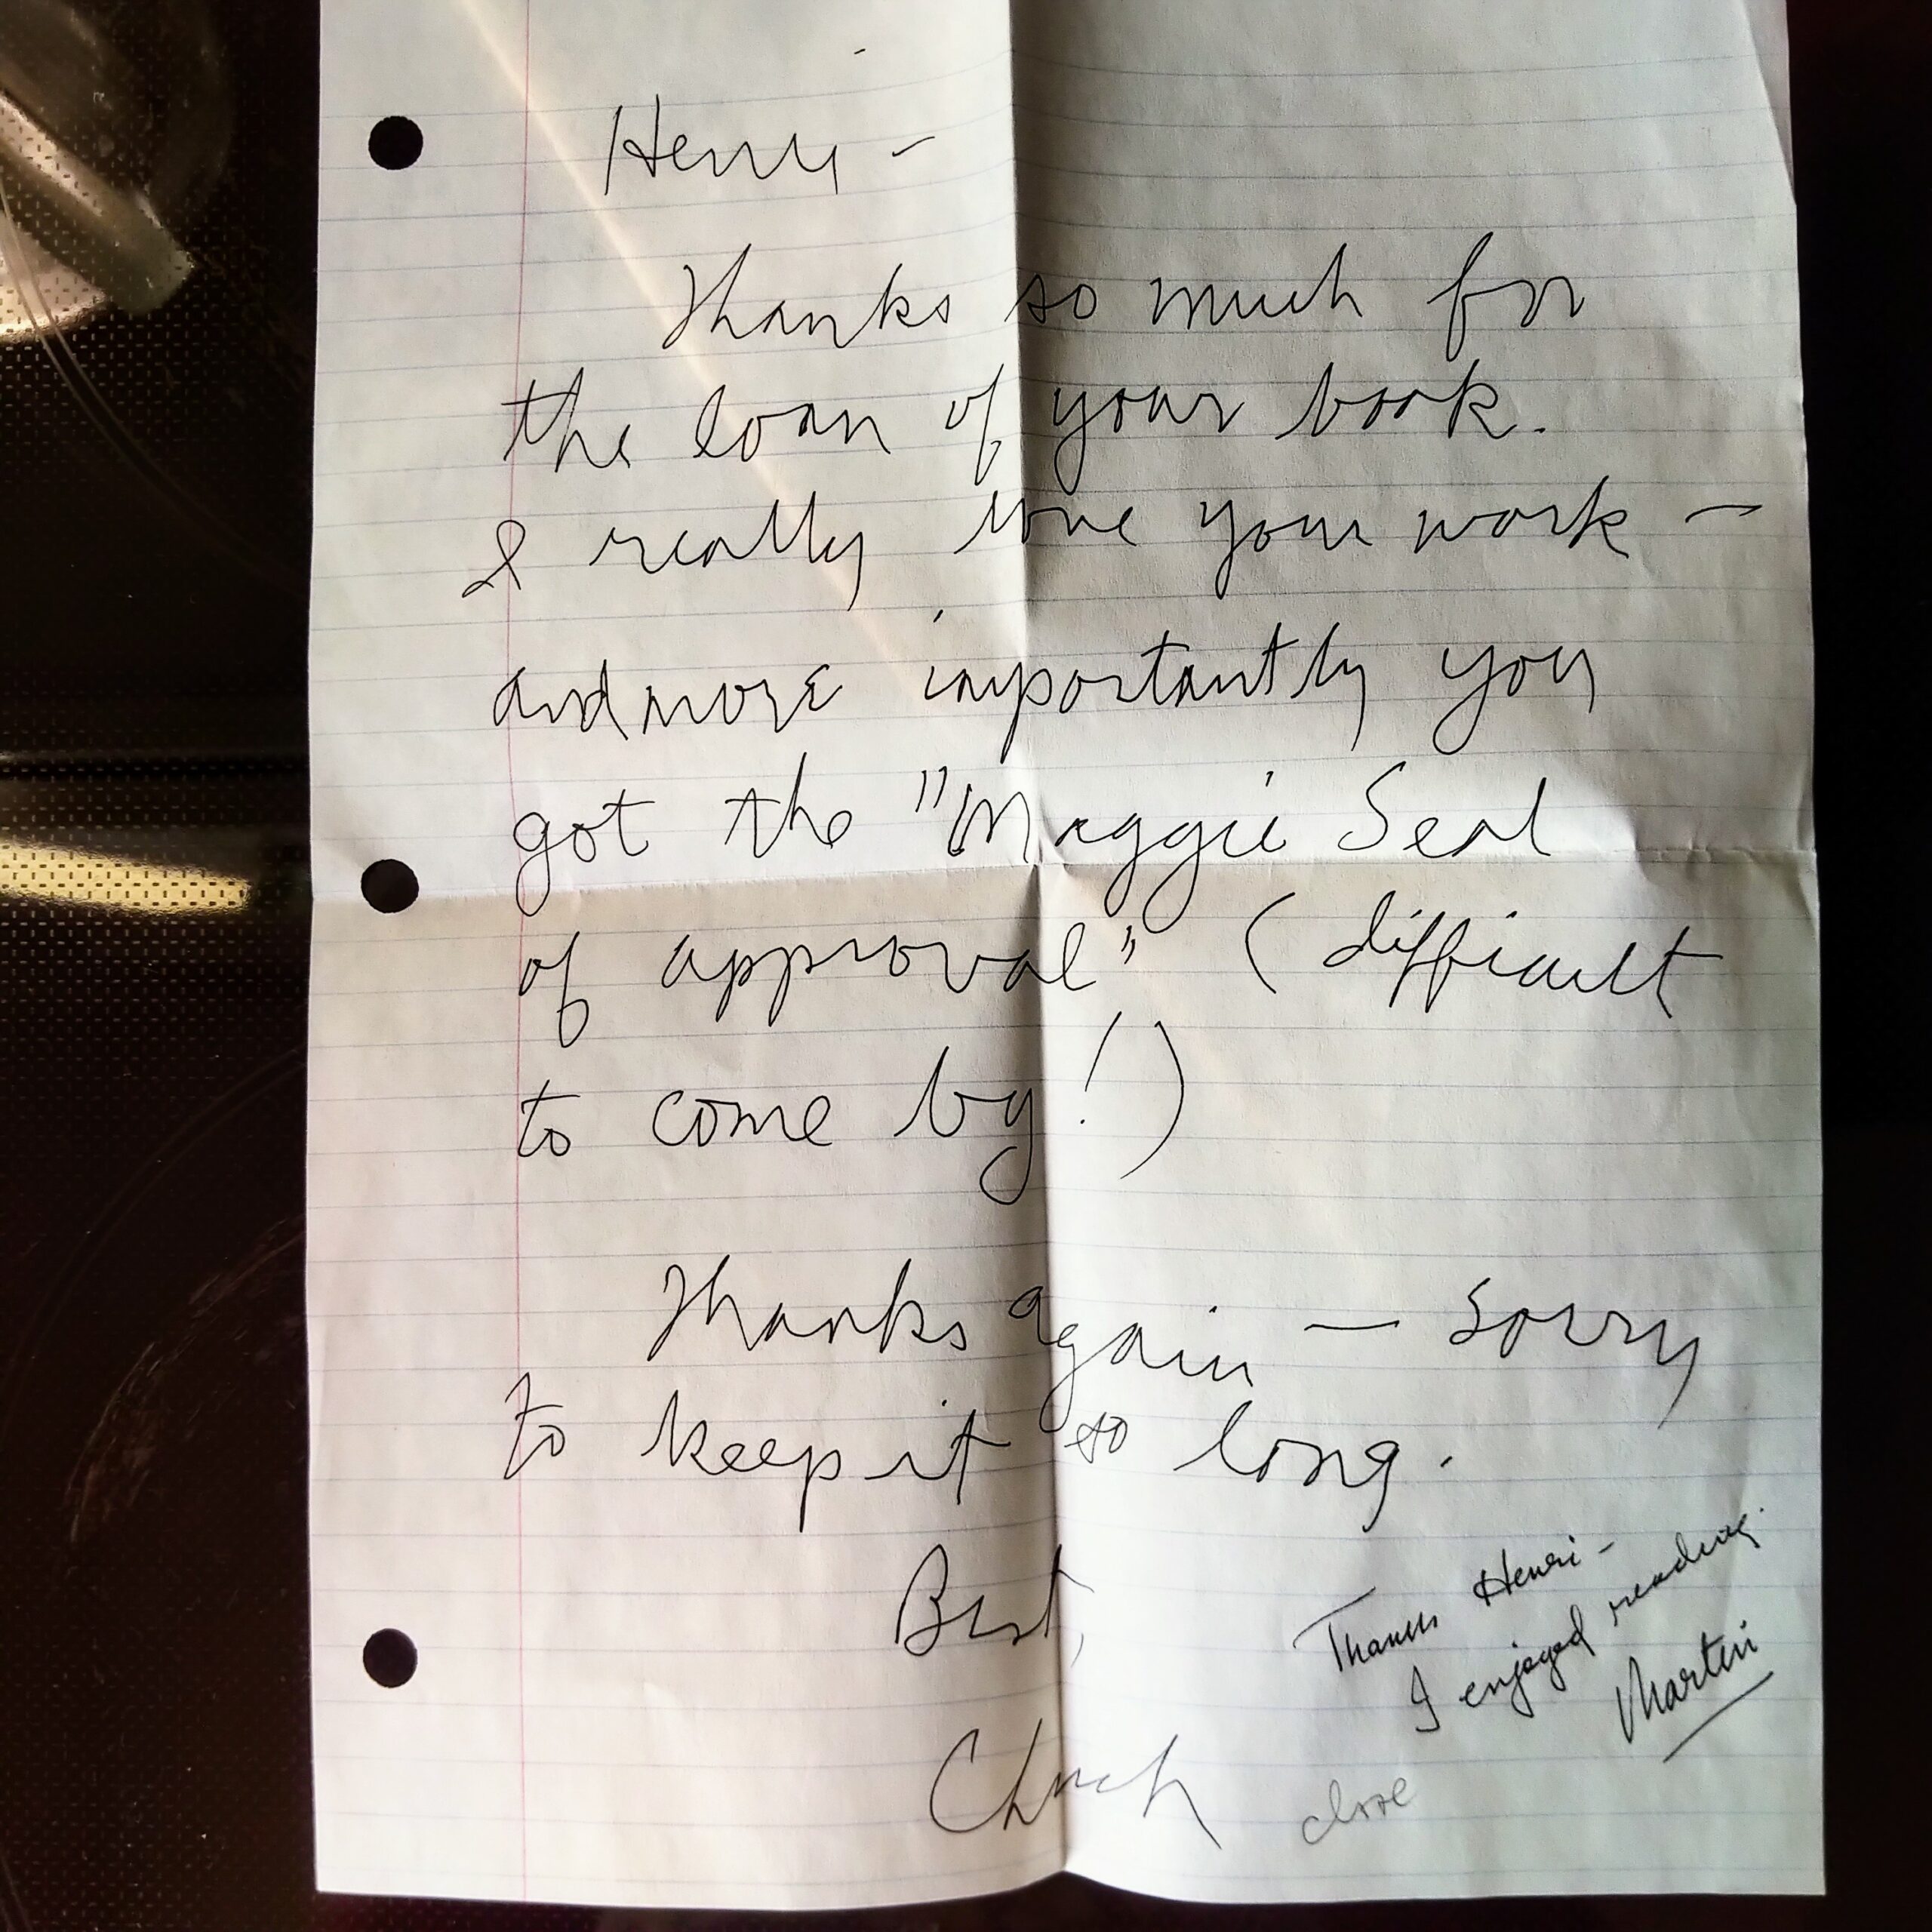 Henri -
Thanks so much for
the loan of your book.
I really love your work -
and more importantly you
got the "Maggie Seal
of approval" (difficult
to come by!)
Thanks again — sorry
to keep it so long.
Best,
Chuck
close
Thanks Henri -
I enjoyed reading.
Martin